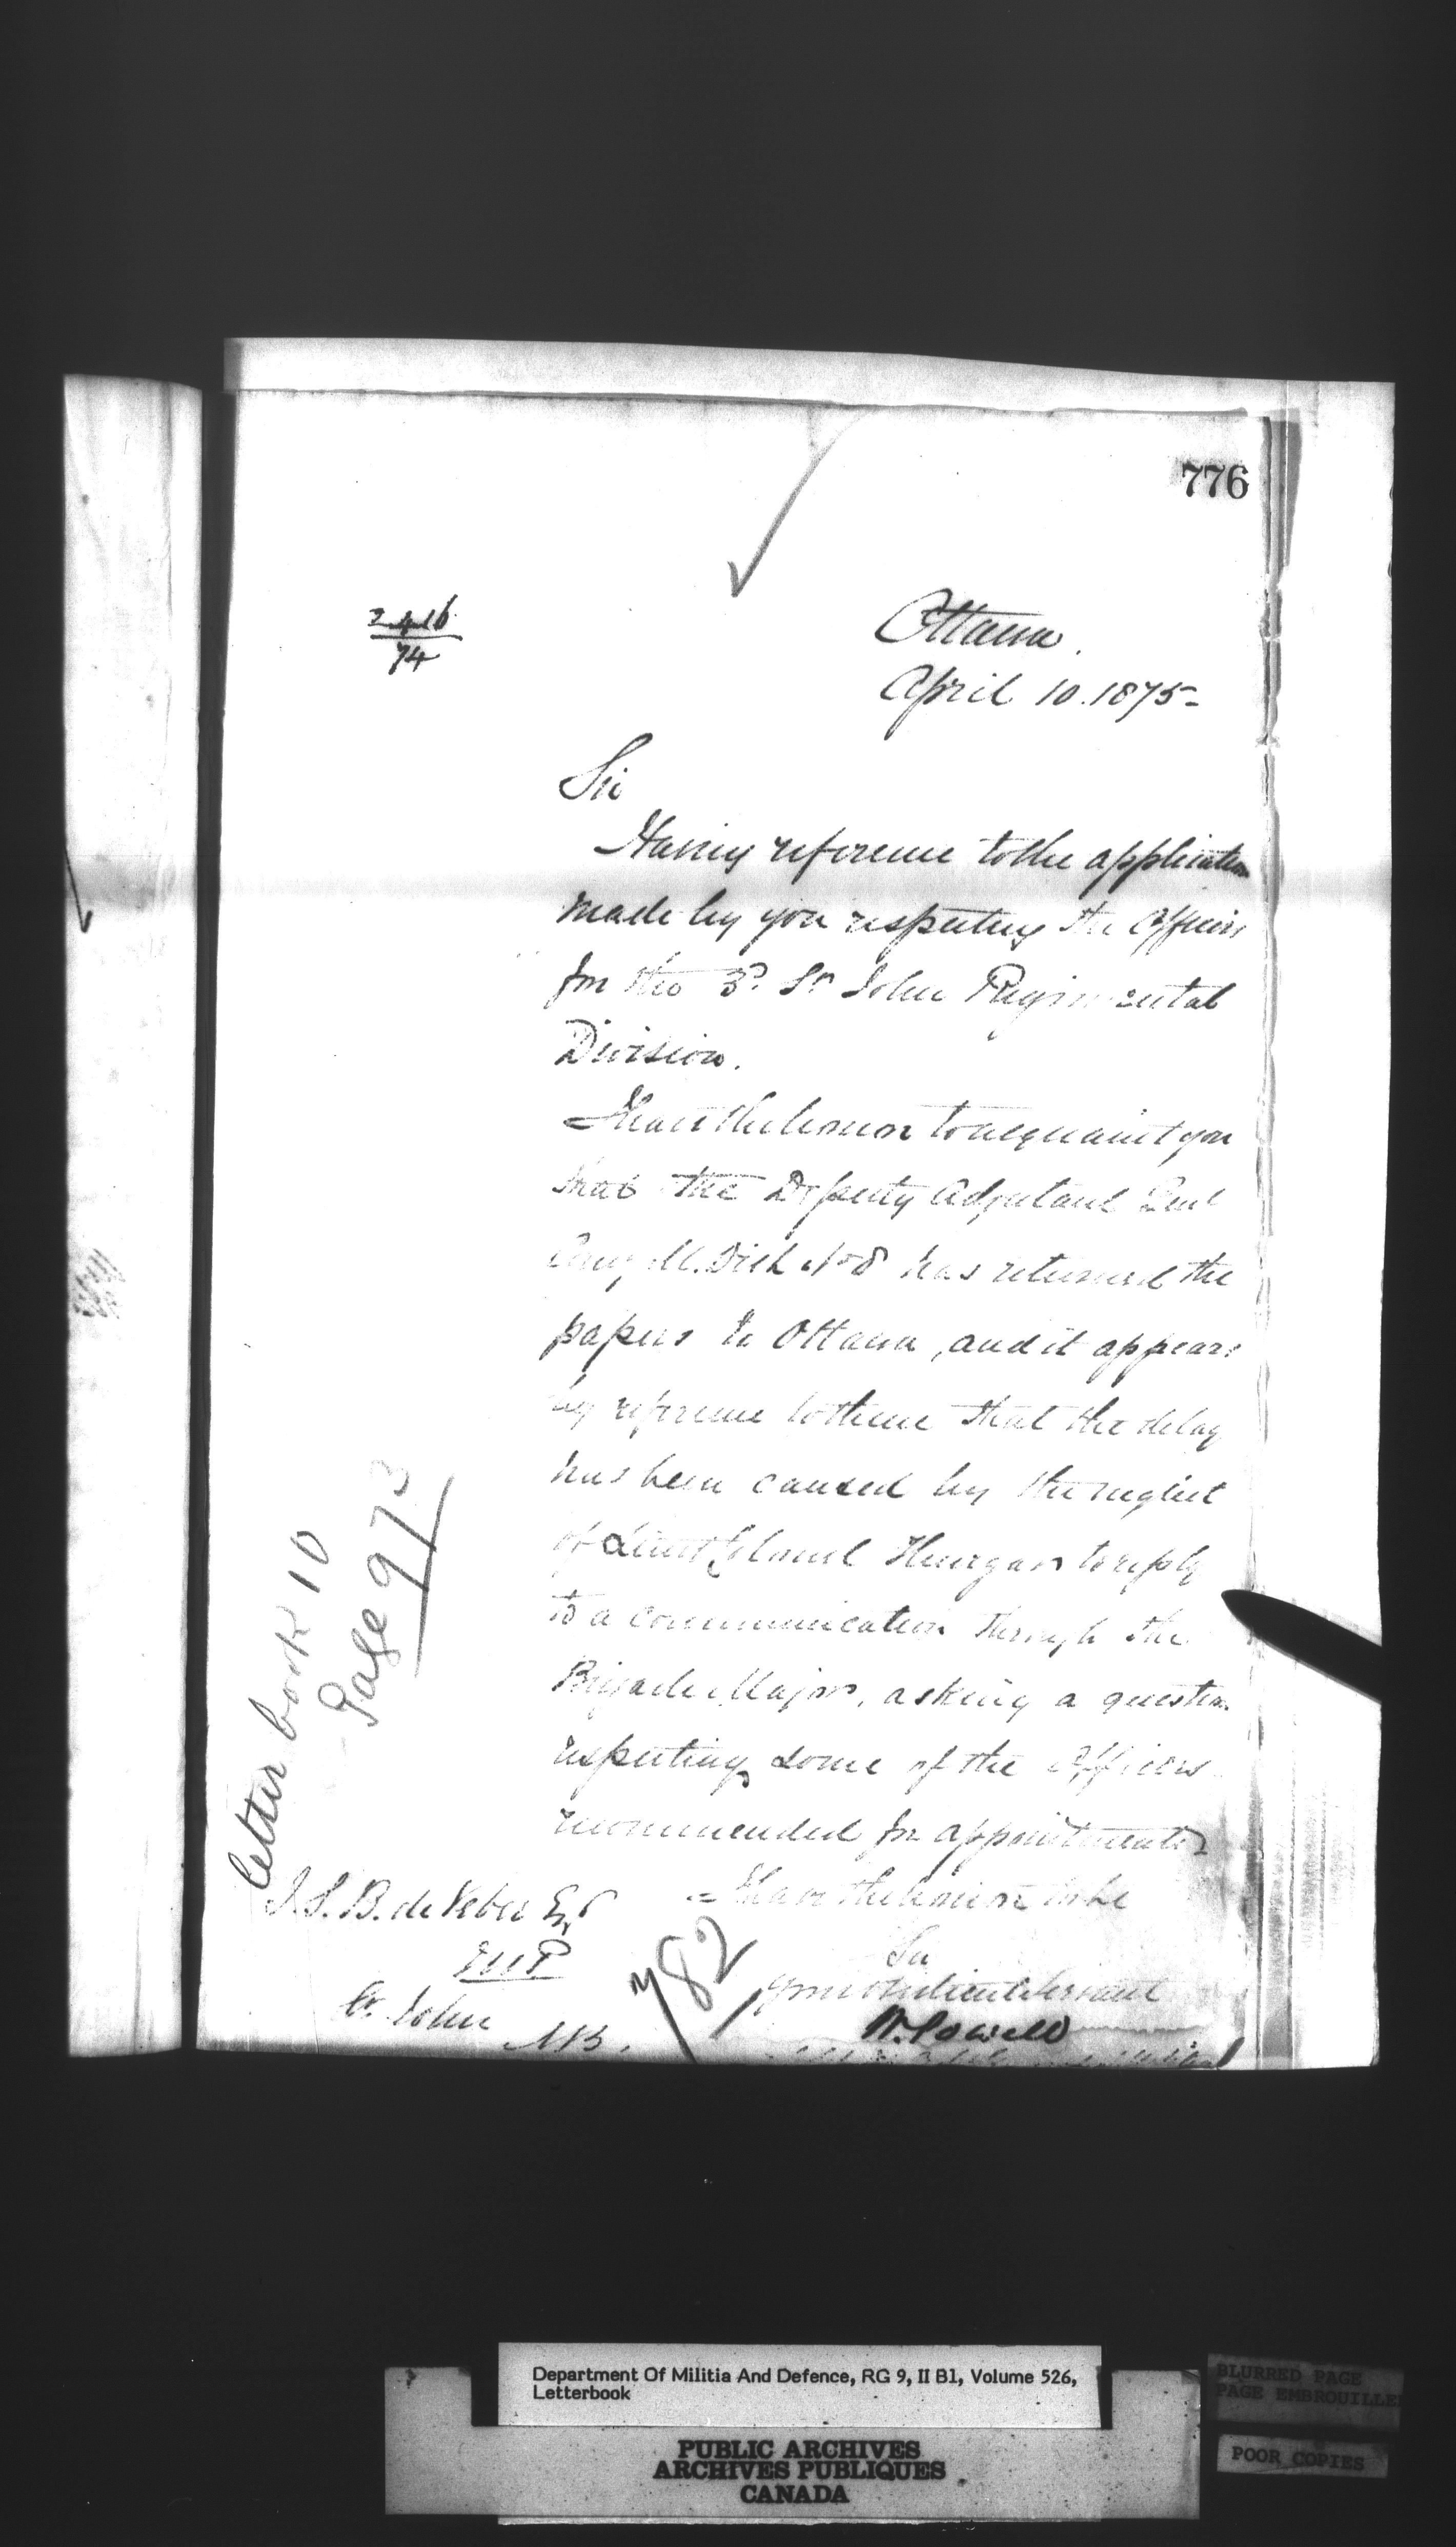 776
74
Ottawa.
April 10. 1875-
Sir
Having reference to the application
made by you respecting the Officers
for the 3d St John Regimental
Division.
I have the honor to acquaint you
that the Deputy Adjutant Genl
Comg M. Dist No 8 has returned the
papers to Ottawa, and it appears
by reference to them that the delay
has been caused by the neglect
of Lieut Colonel to reply
to a communication through the
Brigade Major, asking a question
respecting some of the Officers
recommended for appointments
I have the honor to be
Sir
your obedient servant
W. Powell
Letter book 10
Page 973
J. S. B. de Veber Esq
M P
St. John
NB.
782
Department Of Militia And Defence, RG 9, II B1, Volume 526,
Letterbook
PUBLIC ARCHIVES
ARCHIVES PUBLIQUES
CANADA
BLURRED PAGE
PAGE EMBROUILLE
POOR COPIES